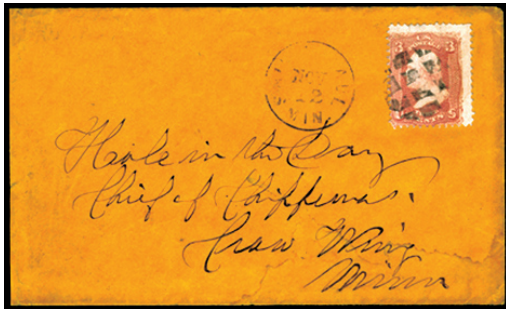 NOV
12
3 3
Hole in the Day
Chief of Chippewas.
Crow Wing
Minn